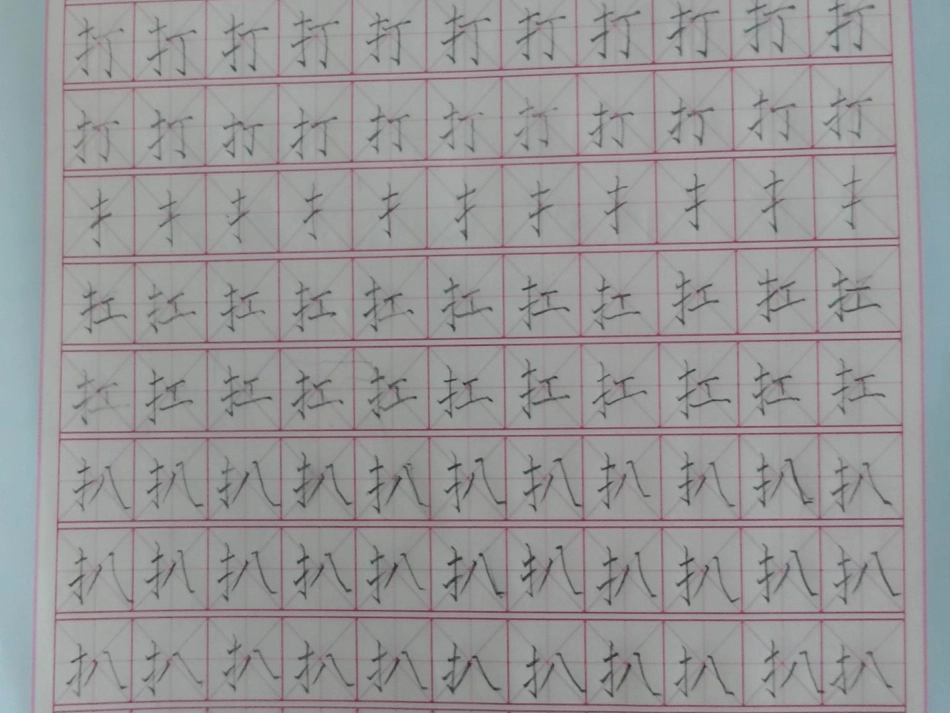 打打打打打打打打打打打
打打打打打打打打打打打
扌扌扌扌扌扌扌扌扌扌扌
扛扛扛扛扛扛扛扛扛扛扛
扛扛扛扛扛扛扛扛扛扛扛
扒扒扒扒扒扒扒扒扒扒扒
扒扒扒扒扒扒扒扒扒扒扒
扒扒扒扒扒扒扒扒扒扒扒